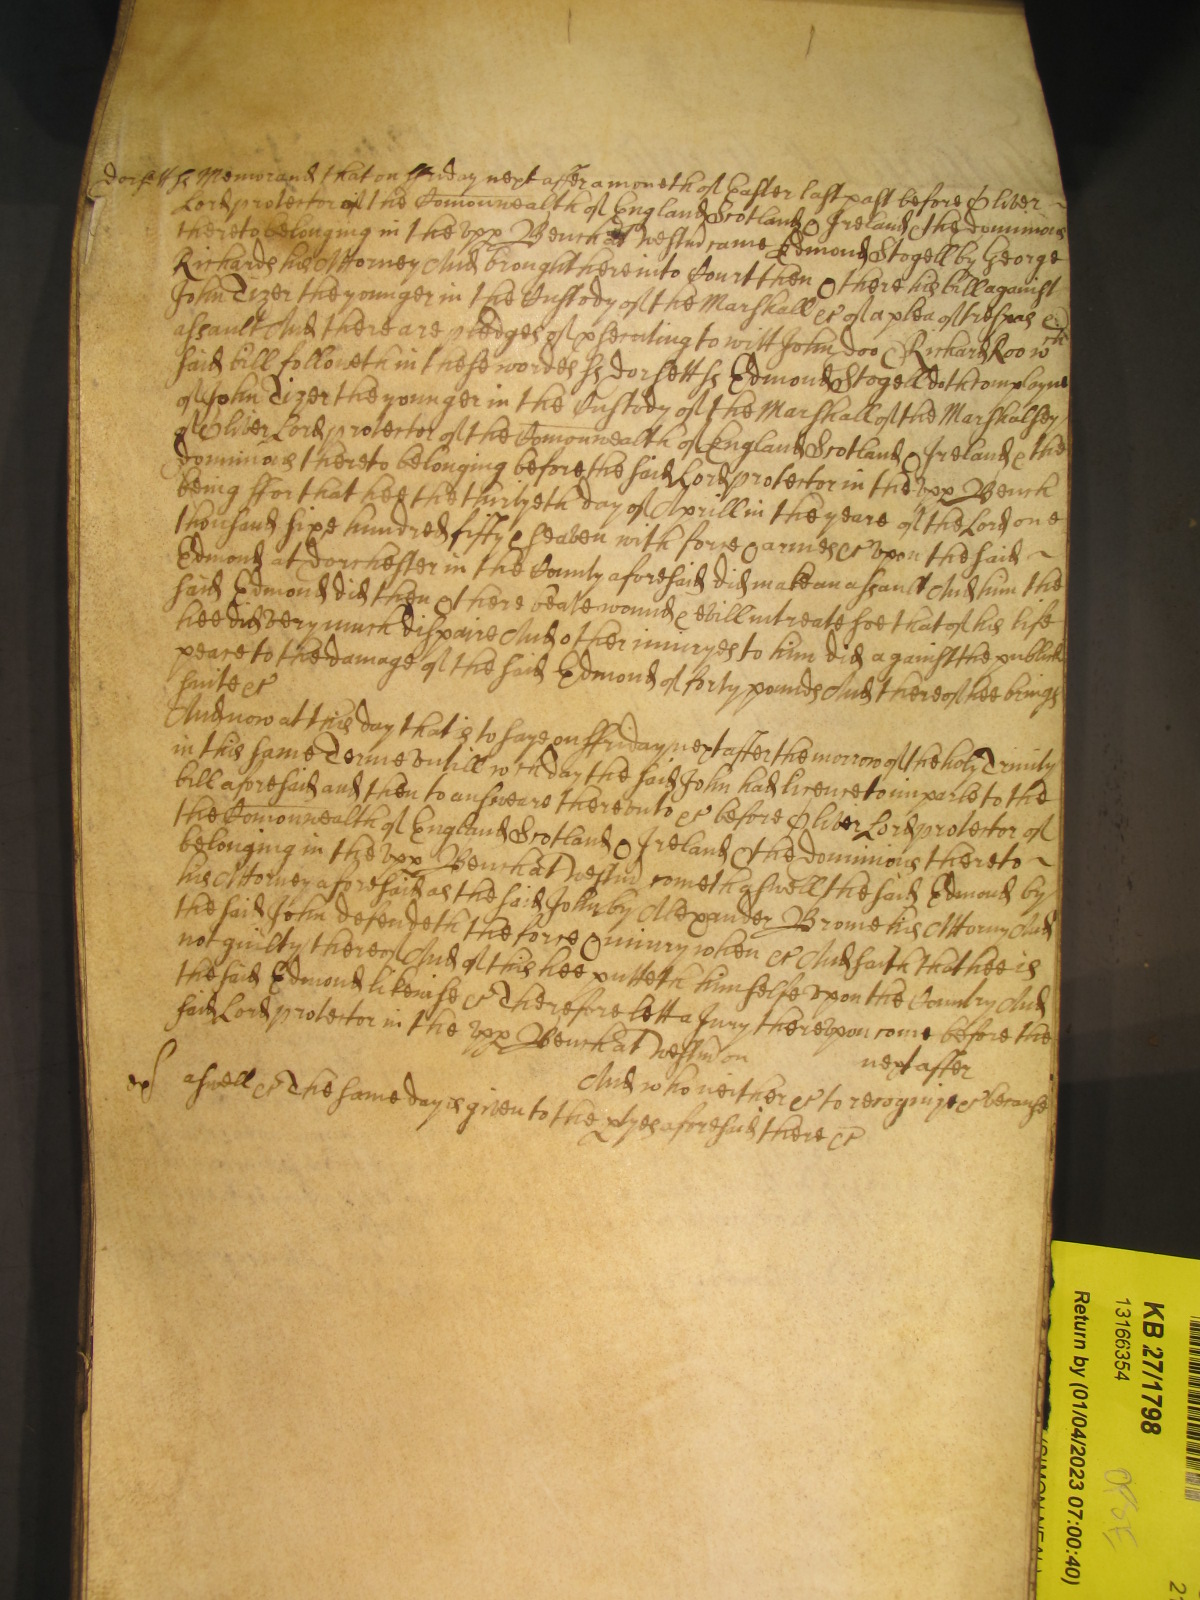 Dorsett ss Memorand that on ffriday next after a moneth of Easter last past before Oliver
Lord protector of the Comonwealth of England Scotland & Ireland & the dominions
thereto belonging in the upp Bench at Westm came Edmond Stogell by George
Richards his Attorney And brought here into Court then & there his bill against
John Tizer the younger in the Custody of the Marshall &c of a plea of trespas &
assault And there are pledges of psecuting to witt John doo & Richard Roo wch
said bill followeth in these wordes ss Dorsett ss Edmond Stogell doth complayne
of John Tizer the younger in the Custody of the Marshall of the Marshalsey
of Oliver Lord protector of the Comonwealth of England Scotland & Ireland & the
dominions thereto belonging before the said Lord protector in the upp Bench
being ffor that hee the thirtyeth day of Aprill in the yeare of the Lord one
thousand sixe hundred fifty & seaven with force & armes &c upon the said
Edmond at Dorchester in the County aforesaid did make an assault And him the
said Edmond did then & there beate wound & evill intreate soe that of his life
hee did very much dispaire And other iniuryes to him did against the publick
peace to the damage of the said Edmond of forty pounds And thereof hee brings
suite &c
And now at this day that is to saye on ffriday next after the morrow of the holy Trinity
in this same Terme untill wch day the said John had licence to imparle to the
bill aforesaid and then to answeare thereunto &c before Oliver Lord protector of
the Comonwealth of England Scotland & Ireland & the dominions thereto
belonging in the upp Bench at Westm cometh aswell the said Edmond by
his Attorney aforesaid as the said John by Alexander Brome his Attorny And
the said John defendeth the force & iniury when &c And saith that hee is
not guilty thereof And of this hee putteth himselfe upon the Country And
the said Edmond likewise &c Therefore lett a Jury thereupon come before the
said Lord protector in the upp Bench at Westm on next after
And who neither &c to recognize &c because
aswell &c The same day is given to the ptyes aforesaid there &c
KB 27/1798
13166354
Return by (01/04/2023 07:00:40)